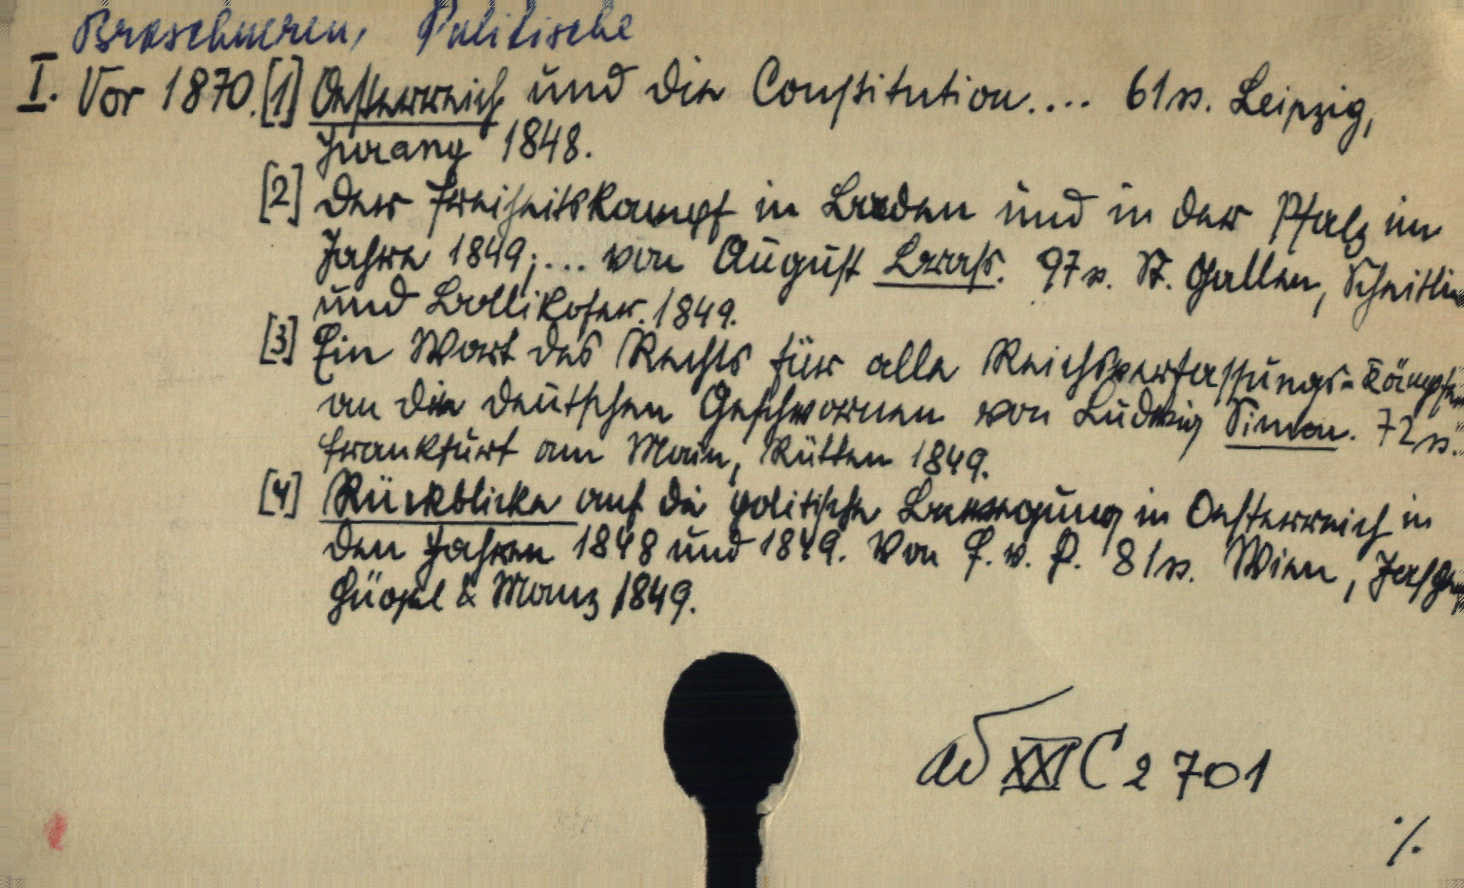 Broschueren, Politische
I. Vor 1870. [1] Oesterreich und die Constitution.... 61 s. Leipzig,
Jurany 1848.
[2] Der Freiheitskampf in Baden und in der Pfalz im
Jahre 1849;... von August Barass. 97 s. St. Gallen, Scheitlin
und Zollikofer. 1849.
[3] Ein Wort des Rechts für alle Reichsverfassungs-Kämpfer
an die deutschen Geschwornen von Ludwig Simon. 72 s.
Frankfurt am Main, Rütten 1849.
[4] Rückblicke auf die politische Bewegung in Oesterreich in
den Jahren 1848 und 1849. Von E. v. P. 81 s. Wien, Jasper,
Hügel & Manz 1849.
ad XXI C 2 701
%